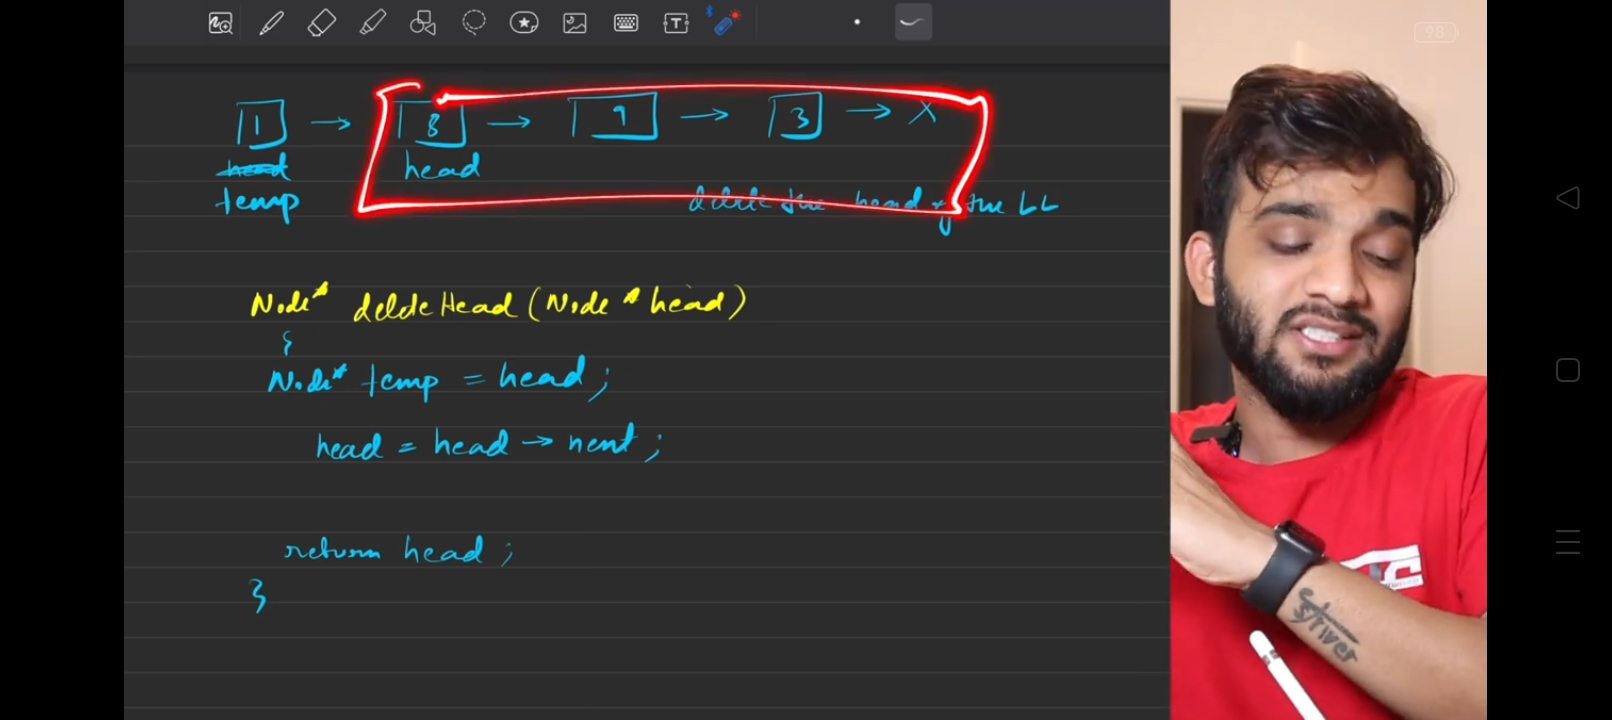 98
1 → 8 → 9 → 3 → X
head head
temp
delete the head of the LL
Node* deleteHead(Node* head)
{
Node* temp = head;
head = head → next;
return head;
}
striver